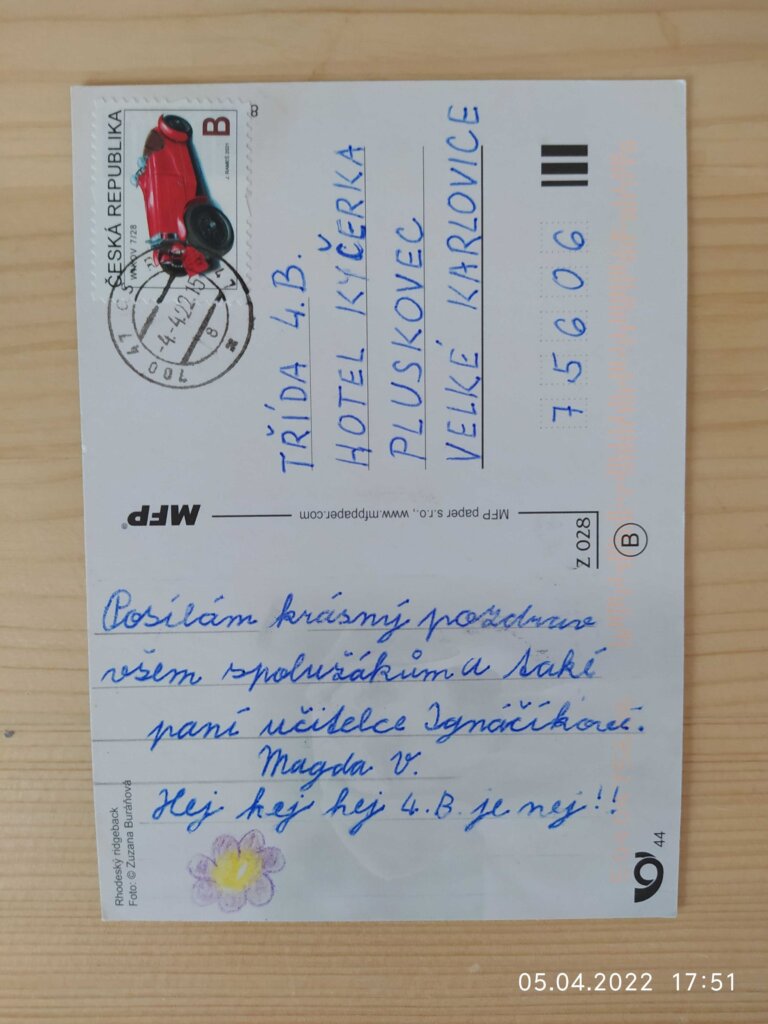 ČESKÁ REPUBLIKA
WIKOV 7/28
B
J. RAMEŠ 2021
8
-4.-4.22.15
TŘÍDA 4.B.
HOTEL KYČERKA
PLUSKOVEC
VELKÉ KARLOVICE
75606
MFP®
MFP paper s.r.o., www.mfppaper.com
Z 028
B
Posílám krásný pozdrav
všem spolužákům a také
paní učitelce Ignáčíkové.
Magda V.
Hej hej hej 4.B. je nej!!
Rhodeský ridgeback
Foto: © Zuzana Buráňová
44
05.04.2022 17:51